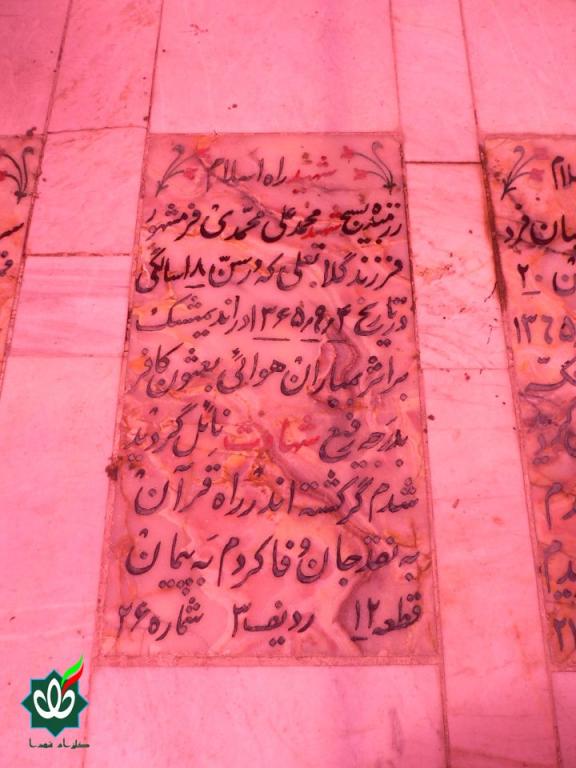 شهید راه اسلام
رزمنده بسیج شهید محمد علی محمدی فرمشهور
فرزند گلابعلی که در سن ۱۸ سالگی
در تاریخ ۱۳۶۵٫۹٫۴ در اندیمشک
بر اثر بمباران هوائی بعثیون کافر
بدرجه رفیع شهادت نائل گردید
شدم گر کشته اندر راه قرآن
به نقد جان وفا کردم به پیمان
قطعه ۱۲ ردیف ۳ شماره ۲۶
گلزار شهدا